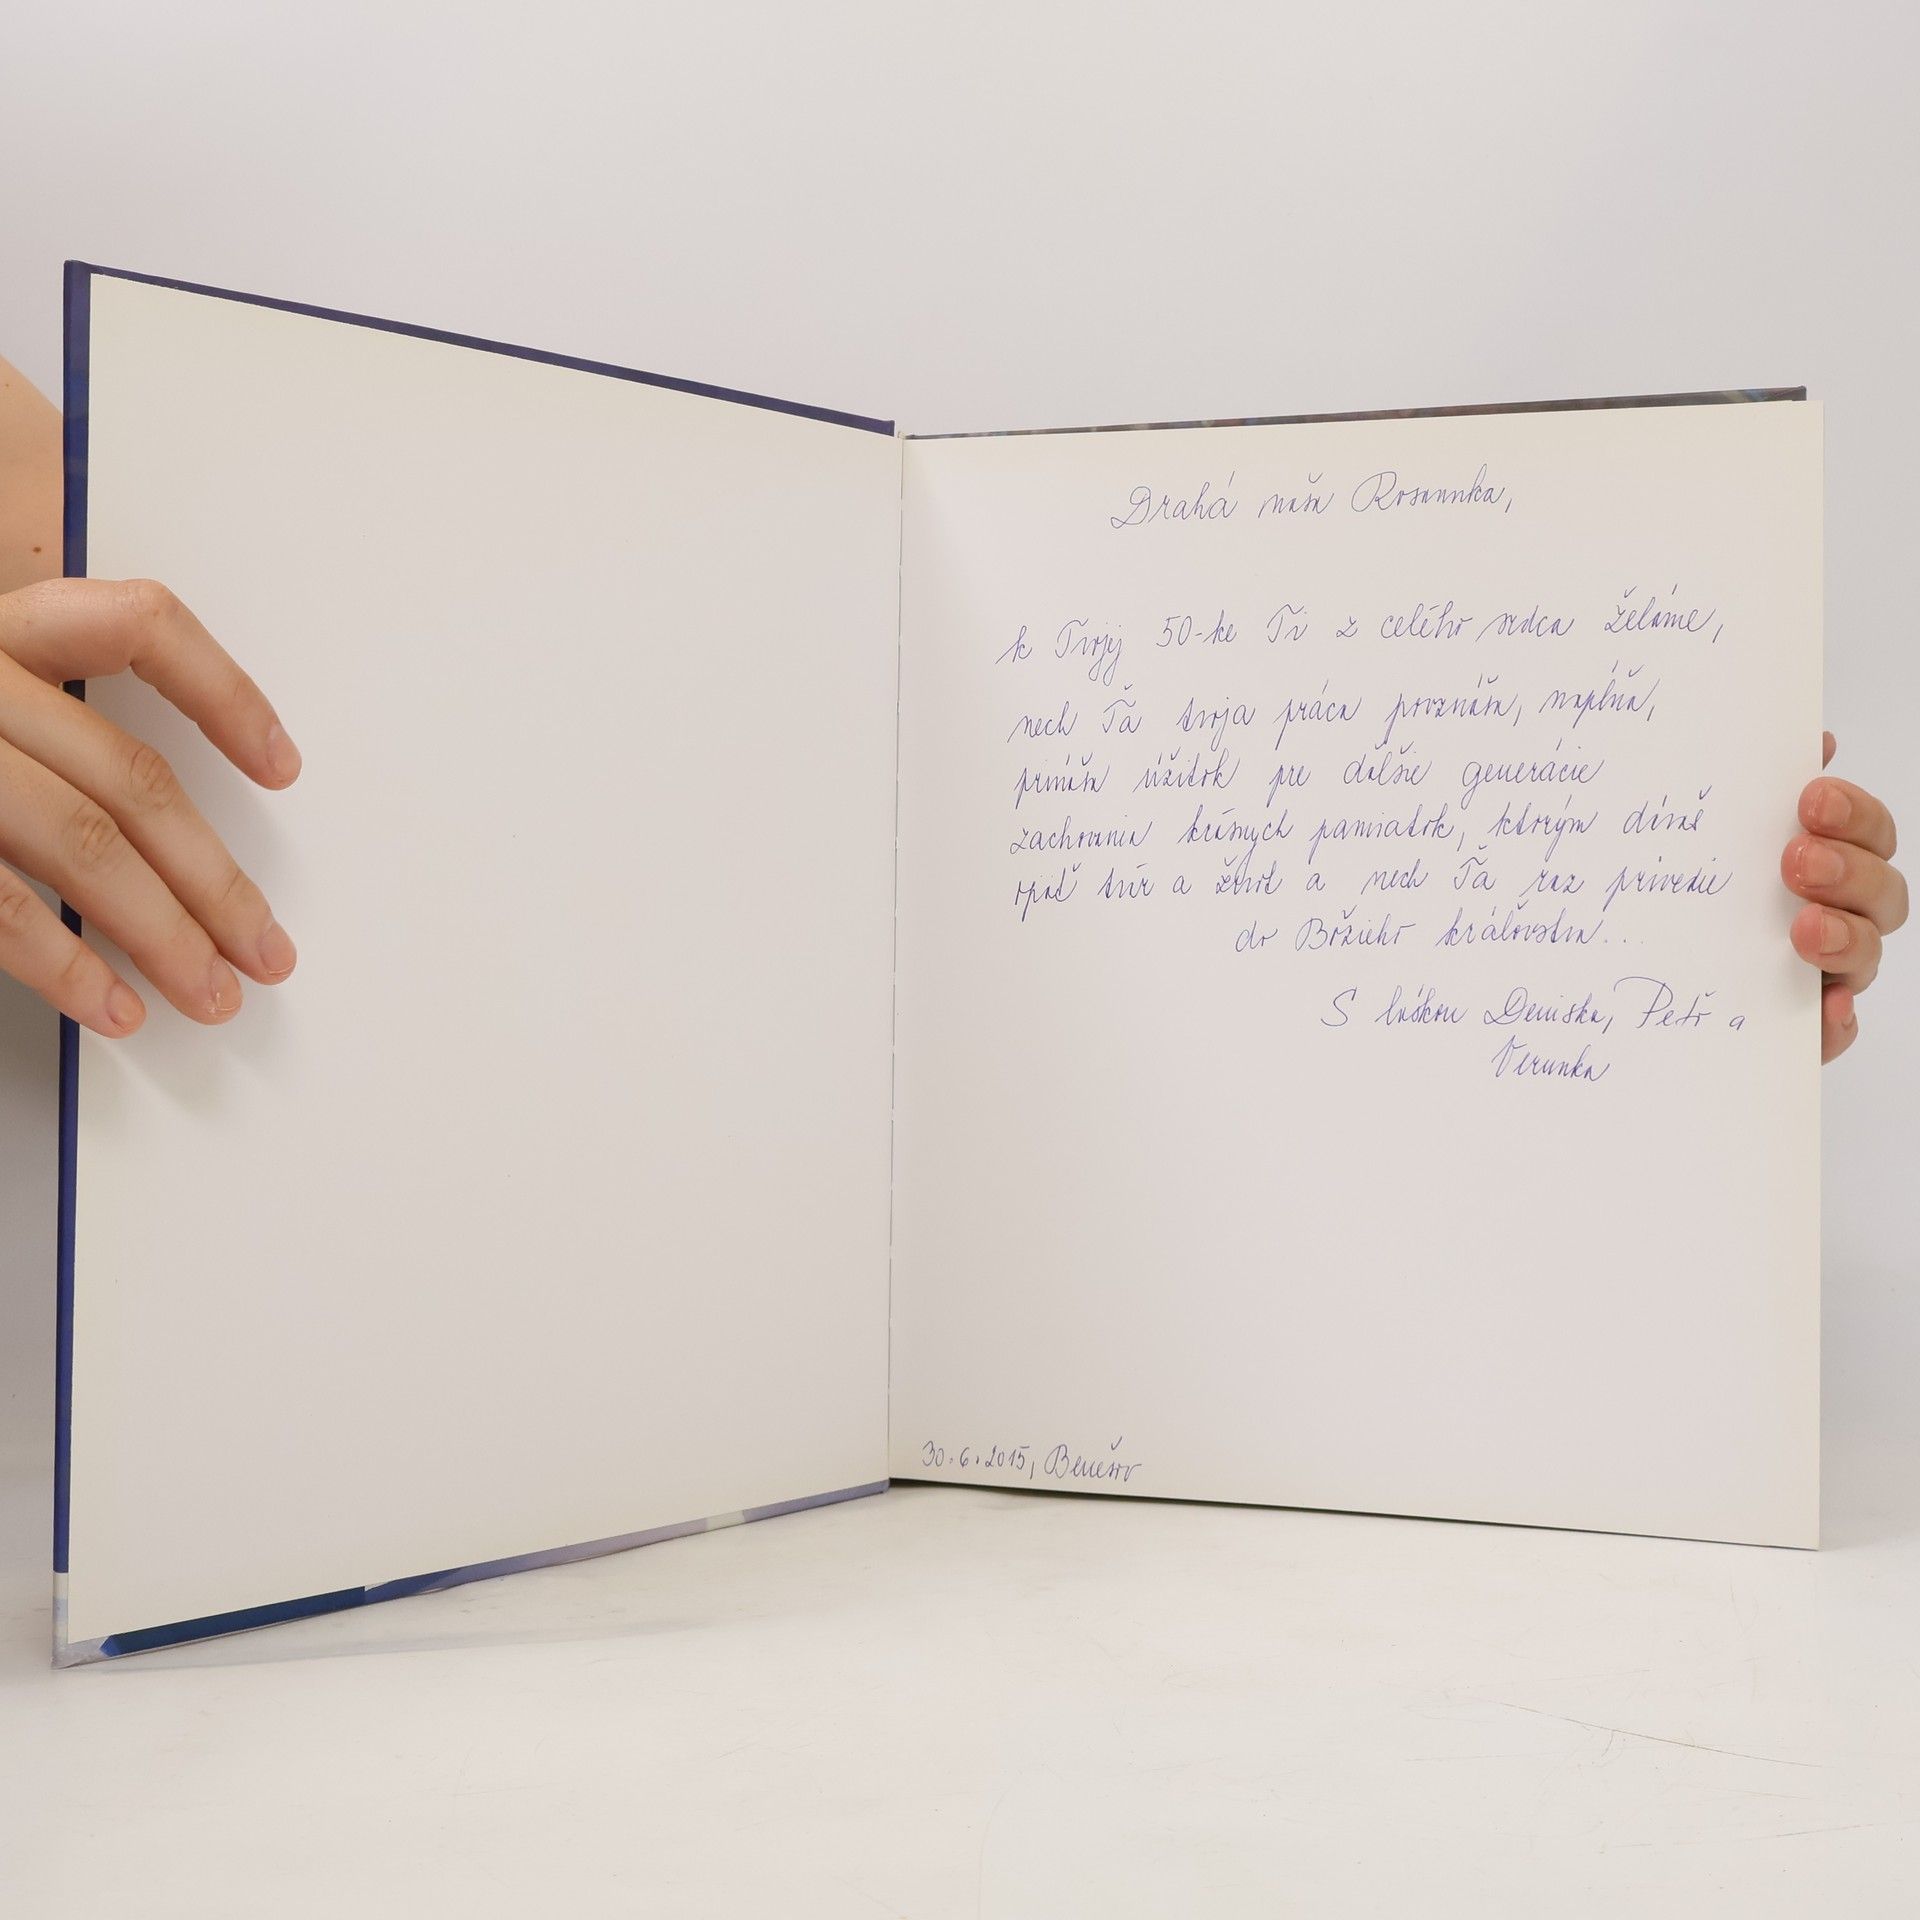 Drahá naša Rosannka,
k Tvojej 50-ke Ti z celého srdca želáme,
nech Ťa tvoja práca povznáša, napĺňa,
prináša úžitok pre ďalšie generácie
zachovania krásnych pamiatok, ktorým dávaš
opäť tvár a život a nech Ťa raz privedie
do Božieho kráľovstva...
S láskou Deniska, Petř a
Verunka
30.6.2015, Benešov